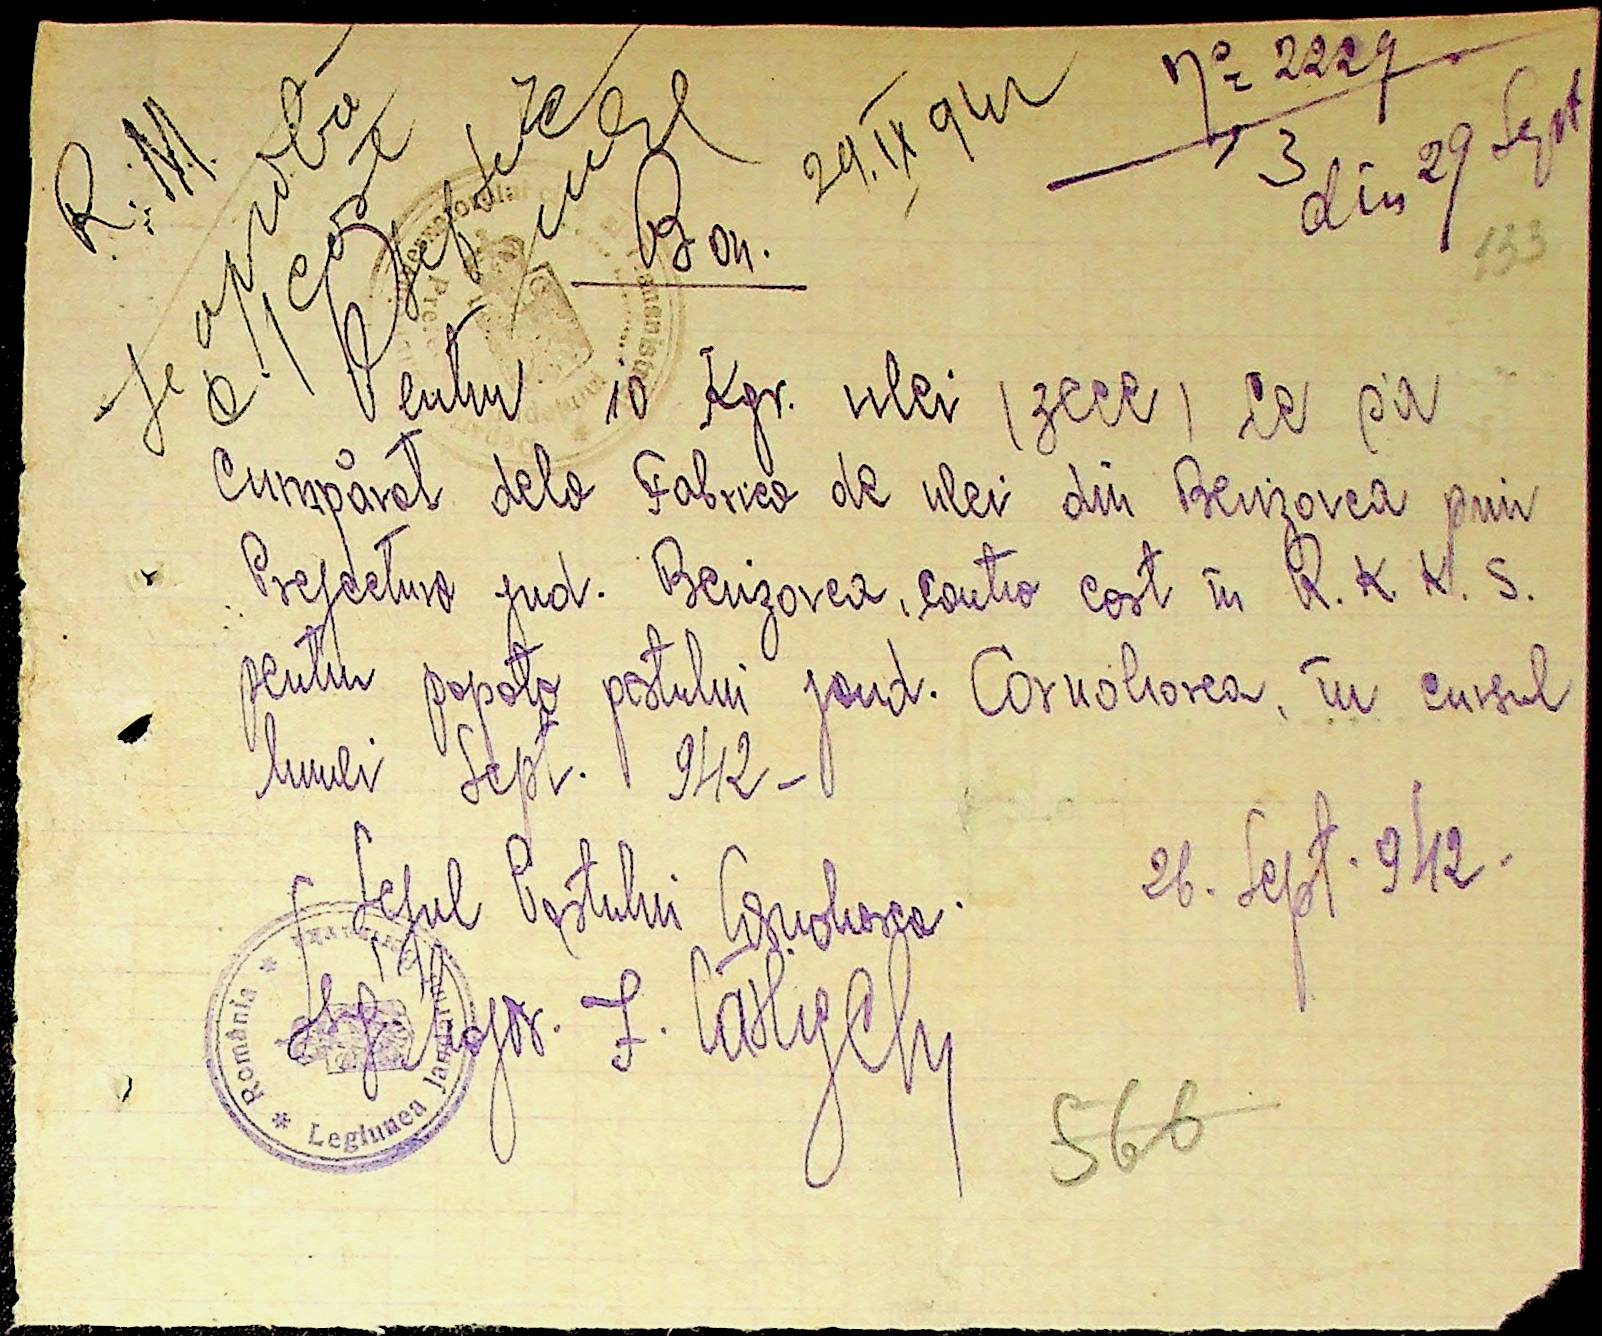 R. M.
Se aprobă
29.IX 942
No 2229
3
din 29 Sept
133
Bon.
Pentru 10 Kgr. ulei (zece) ce s'a
cumpărat dela Fabrica de ulei din Berizovca prin
Prefectura jud. Berizovca, contra cost în R. K. K. S.
pentru popota postului jand. Cornohorca, în cursul
lunei Sept. 942 -
26. Sept. 942.
Șeful Postului Cornohorca.
Plot. Major. I.
România * Legiunea Jandarmi
566